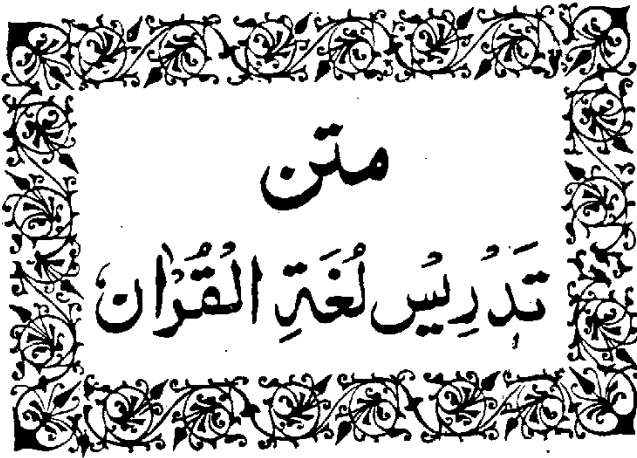 متن
تَدْرِيسُ لُغَةِ الْقُرْاٰن